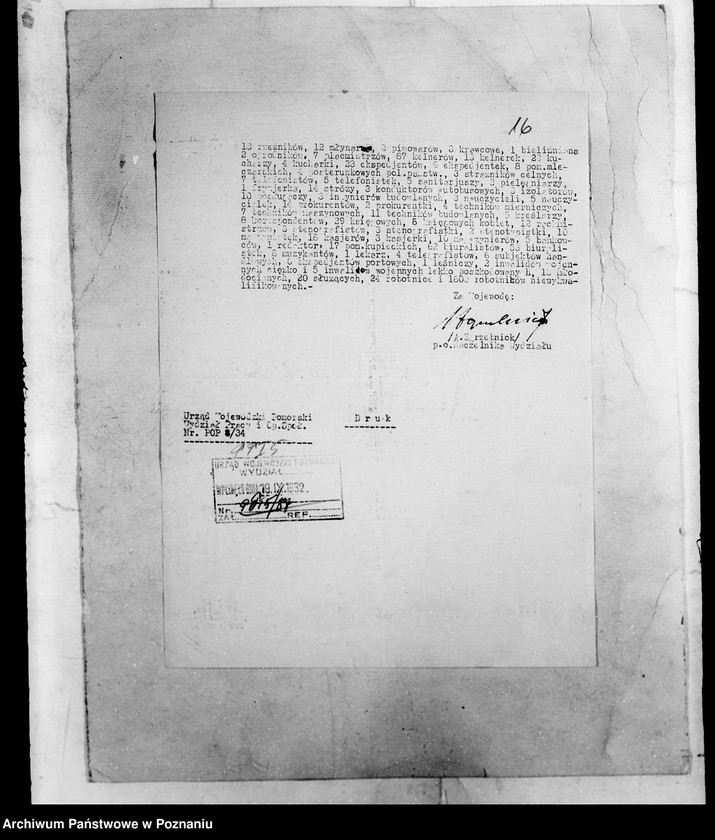 16
13 rzeźników, 12 młynarzy, 2 piwowarów, 3 krawcowe, 1 bieliźniana
2 ogrodników, 7 płacmistrzów, 87 kelnerów, 13 kelnerek, 23 ku-
charzy, 4 kucharki, 23 ekspedjentów, ekspedjentek, 8 pom.mle-
czarskich, 4 posterunkowych pol.państw., 3 strażników celnych,
7 telefonistek, 5 sanitarjuszy, 3 pielęgniarzy,
1 fryzjerka, 14 stróży, 3 konduktorów autobusowych, 3 izolatorów,
10 inżynierów budowlanych, 3 nauczycieli, 5 nauczy-
cielek, 14 prokurentów, 2 prokurentki, 4 techników mierniczych,
7 techników maszynowych, 11 techników budowlanych, 5 kreślarzy,
8 korespondentów, 39 księgowych, 6 księgowych kobiet, 12
stenografistów, 3 stenografistki, 3 stenotypistki, 10
18 kasjerów, 3 kasjerki, 10 magazynierów, 5 bankow-
ców, 1 redaktor, 17 pom.kupieckich, 62 biuralistów, 53 biurali-
stek, muzykantów, 1 lekarz, 4 telegrafistów, 6 subjektów han-
dlowych, 6 ekspedjentów portowych, 1 leśniczy, 2 inwalidów wojen-
nych ciężko i 5 inwalidów wojennych lekko poszkodowanych, mło-
docianych, 20 służących, 34 robotnice i 1600 robotników niewykwa-
lifikowanych.-
Za Wojewodę:
/A.Zgrzebniok/
p.o.Naczelnika Wydziału
Urząd Wojewódzki Pomorski
Wydział Pracy i Op.Społ.
Nr. POP 8/34
D r u k
URZĄD WOJEWÓDZKI POZNAŃSKI
WYDZIAŁ
WPŁYNĘŁO DNIA 19.IX.1932.
Nr.
ZAŁ. REF.
Archiwum Państwowe w Poznaniu